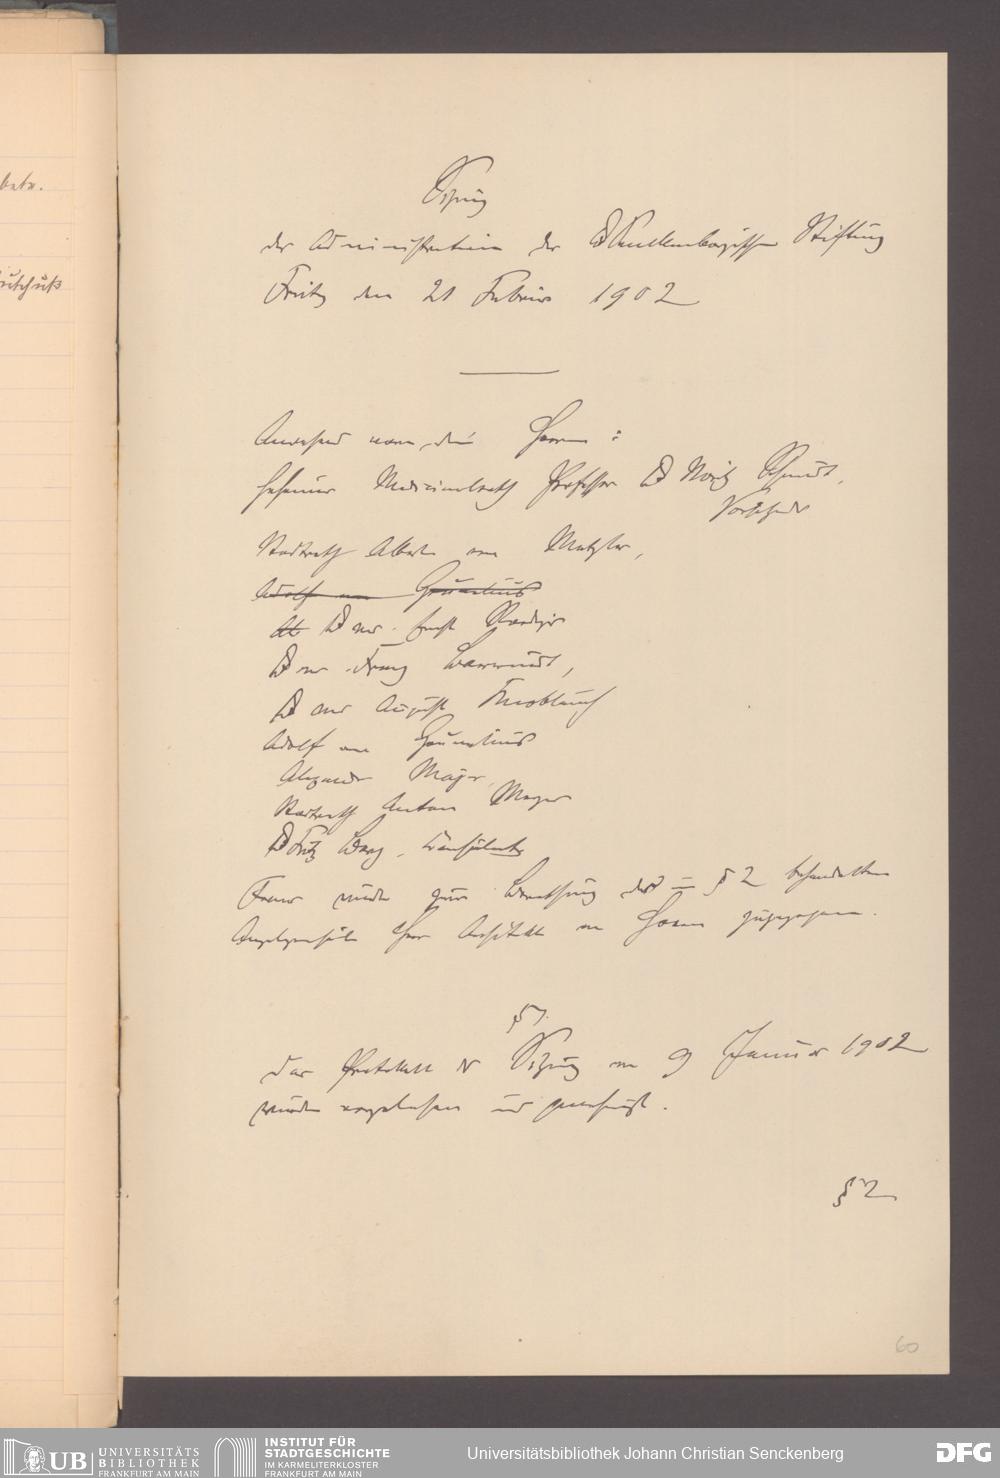 Sitzung
der Administration der Dr Senckenbergischen Stiftung
Freitag den 21 Februar 1902
Anwesend waren die Herren:
Geheimer Medicinalrath Professor Dr Moritz Schmidt,
Vorsitzender
Stadtrath Albert von Metzler,
Adolf von Grunelius
Dr med. Ernst Roediger
Dr med. Franz Bärwindt,
Dr med August Knoblauch
Adolf von Grunelius
Alexander Majer,
Stadtrath Anton Meyer
Dr Fritz Berg, Consulent
Ferner wurde zur Berathung der in § 2 behandelten
Angelegenheit Herr Architekt von Hoven zugezogen.
§ 1.
Das Protokoll der Sitzung vom 9 Januar 1902
wurde vorgelesen und genehmigt.
§ 2
60
betr.
UB UNIVERSITÄTS
BIBLIOTHEK
FRANKFURT AM MAIN
INSTITUT FÜR
STADTGESCHICHTE
IM KARMELITERKLOSTER
FRANKFURT AM MAIN
Universitätsbibliothek Johann Christian Senckenberg
DFG